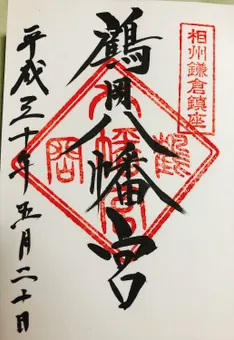 相州鎌倉鎮座
鶴岡八幡宮
平成三十年五月二十日
鶴
岡
八幡宮